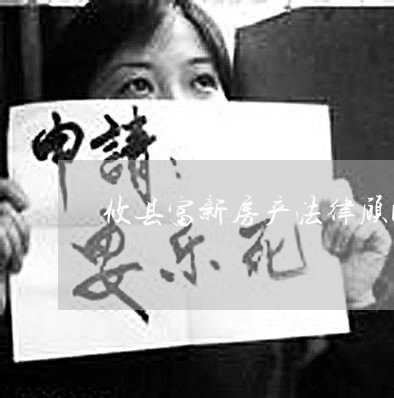 申請：
攸县富新房产法律顾
要乐死